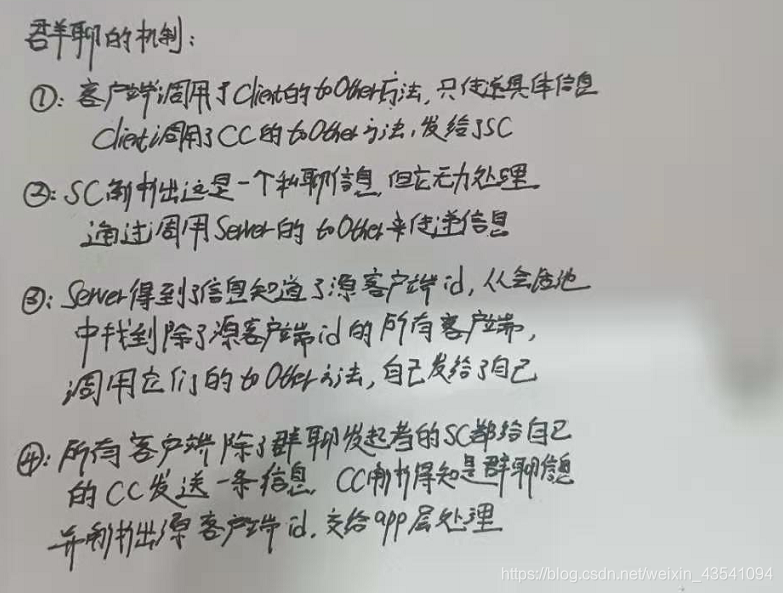 群聊的机制:
①: 客户端调用了Client的toOther方法,只传递具体信息
Client调用了CC的toOther方法,发给了SC
②: SC解析出这是一个私聊信息,但它无力处理
通过调用Server的toOther来传递信息
③: Server得到了信息知道了源客户端id,从会话池
中找到除了源客户端id的所有客户端,
调用它们的toOther方法,自己发给了自己
④: 所有客户端除了群聊发起者的SC都给自己
的CC发送一条信息,CC解析得知是群聊信息
并解析出源客户端id,交给app层处理
https://blog.csdn.net/weixin_43541094